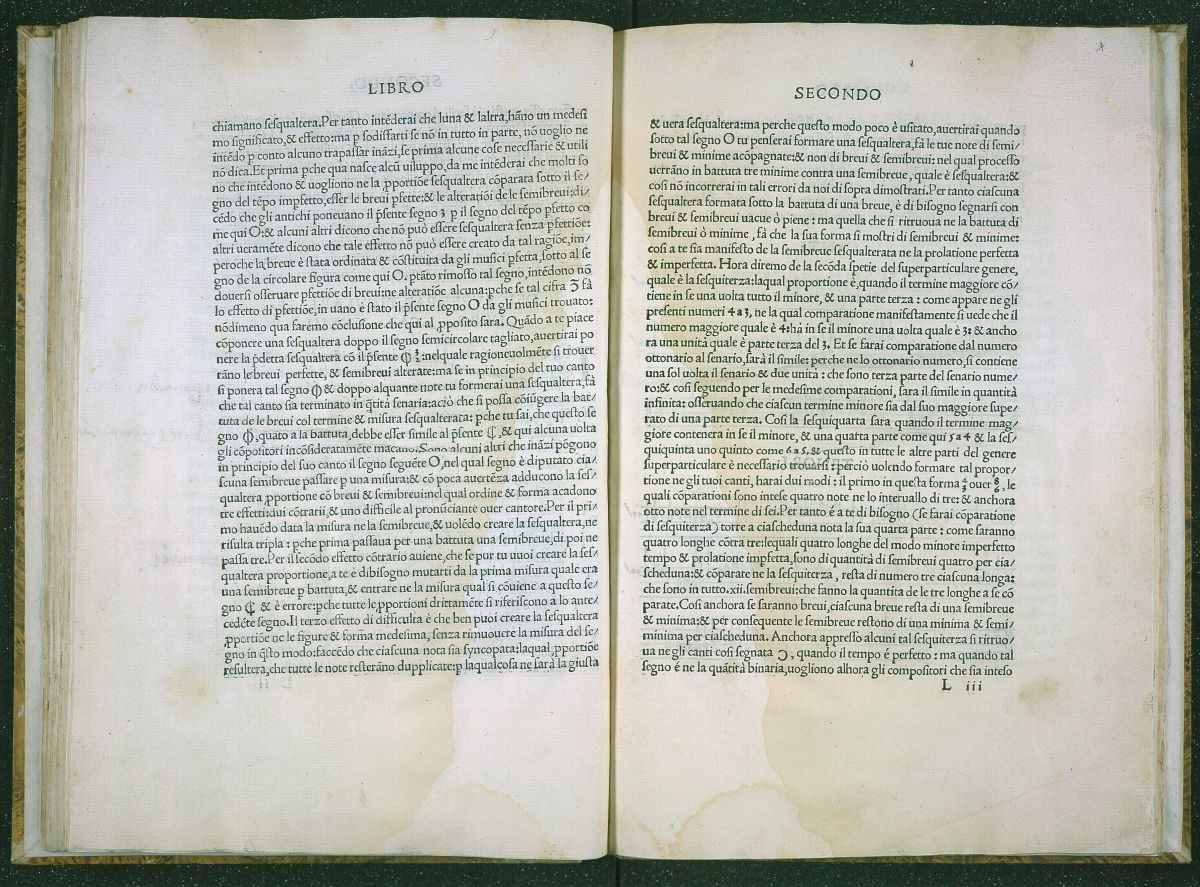 LIBRO
chiamano ſeſqualtera.Per tanto intēderai che luna & laltra,hāno un medeſi
mo ſignificato,& effetto:ma p ſodiſfarti ſe nō in tutto in parte, nō uoglio ne
intēdo p conto alcuno trapaſſar ināzi,ſe prima alcune coſe neceſſarie & utili
nō dica.Et prima pche qua naſce alcū uiluppo,da me intēderai che molti ſo
no che intēdono & uogliono ne la ꝓportiōe ſeſqualtera cōparata ſotto il ſe/
gno del tēpo impfetto,eſſer le breui pfette:& le alteratiōi de le ſemibreui:di/
cēdo che gli antichi poneuano il p̄ſente ſegno 3 p il ſegno del tēpo pfetto co
me qui O:& alcuni altri dicono che nō può eſſere ſeſqualtera ſenza pfettiōe:
altri ueramēte dicono che tale effetto nō può eſſere creato da tal ragiōe,im/
peroche la breue è ſtata ordinata & cōſtituita da gli muſici pfetta,ſotto al ſe
gno de la circolare figura come qui O. ptāto rimoſſo tal ſegno,intēdono nō
douerſi oſſeruare pfettiōe di breui:ne alteratiōe alcuna:pche ſe tal cifra 3 fà
lo effetto di pfettiōe,in uano è ſtato il p̄ſente ſegno O da gli muſici trouato:
nōdimeno qua faremo cōcluſione che qui al ꝓpoſito ſara. Quādo a te piace
cōponere una ſeſqualtera doppo il ſegno ſemicircolare tagliato,auertirai po
nere la p̄detta ſeſqualtera cō il p̄ſente ⏀ 3/2:nelquale ragioneuolmēte ſi trouer
rāno le breui perfette, & ſemibreui alterate:ma ſe in principio del tuo canto
ſi ponera tal ſegno ⏀ & doppo alquante note tu formerai una ſeſqualtera,fà
che tal canto ſia terminato in q̄tità ſenaria:aciò che ſi poſſa cōiūgere la bat/
tuta de le breui col termine & miſura ſeſqualterata: pche tu ſai,che queſto ſe
gno ⏀, quāto a la battuta,debbe eſſer ſimile al p̄ſente ₵, & qui alcuna uolta
gli cōpoſitori incōſideratamēte macano.Sono alcuni altri che ināzi pōgono
in principio del ſuo canto il ſegno ſeguēte O,nel qual ſegno è diputato cia/
ſcuna ſemibreue paſſare p una miſura:& cō poca auertēza adducono la ſeſ/
qualtera ꝓportione cō breui & ſemibreui:nel qual ordine & forma acadono
tre effetti:dui cōtrarii,& uno difficile al pronūciante ouer cantore.Per il pri/
mo hauēdo data la miſura ne la ſemibreue,& uolēdo creare la ſeſqualtera,ne
riſulta tripla : pche prima paſſaua per una battuta una ſemibreue,di poi ne
paſſa tre.Per il ſecōdo effetto cōtrario auiene,che ſe pur tu uuoi creare la ſeſ/
qualtera proportione,a te è dibiſogno mutarti da la prima miſura quale era
una ſemibreue p battuta,& entrare ne la miſura qual ſi cōuiene a queſto ſe/
gno ₵ & è errore:pche tutte le ꝓportioni drittamēte ſi riferiſcono a lo ante/
cedēte ſegno.Il terzo effetto di difficulta è che ben puoi creare la ſeſqualtera
ꝓportiōe ne le figure & forma medeſima, ſenza rimuouere la miſura del ſe/
gno in q̄ſto modo:faccēdo che ciaſcuna nota ſia ſyncopata:laqual ꝓportiōe
reſultera,che tutte le note reſterāno dupplicate:p laqualcoſa ne ſarà la giuſta
SECONDO
& uera ſeſqualtera:ma perche queſto modo poco è uſitato,auertirai quando
ſotto tal ſegno O tu penſerai formare una ſeſqualtera,fà le tue note di ſemi/
breui & minime acōpagnate:& non di breui & ſemibreui: nel qual proceſſo
uerrāno in battuta tre minime contra una ſemibreue, quale è ſeſqualtera:&
coſi nō incorrerai in tali errori da noi di ſopra dimoſtrati.Per tanto ciaſcuna
ſeſqualtera formata ſotto la battuta di una breue, è di biſogno ſegnarſi con
breui & ſemibreui uacue ò piene : ma quella che ſi ritruoua ne la battuta di
ſemibreui ò minime , fà che la ſua forma ſi moſtri di ſemibreui & minime:
coſi a te ſia manifeſto de la ſemibreue ſeſqualterata ne la prolatione perfetta
& imperfetta. Hora diremo de la ſecōda ſpetie del ſuperparticulare genere,
quale è la ſeſquiterza:laqual proportione è,quando il termine maggiore cō/
tiene in ſe una uolta tutto il minore, & una parte terza : come appare ne gli
preſenti numeri 4 a 3, ne la qual comparatione manifeſtamente ſi uede che il
numero maggiore quale è 4:hà in ſe il minore una uolta quale è 3: & ancho
ra una unità quale è parte terza del 3. Et ſe farai comparatione dal numero
ottonario al ſenario,ſarà il ſimile: perche ne lo ottonario numero,ſi contiene
una ſol uolta il ſenario & due unità : che ſono terza parte del ſenario nume/
ro:& coſi ſeguendo per le medeſime comparationi, ſara il ſimile in quantità
infinita: oſſeruando che ciaſcun termine minore ſia dal ſuo maggiore ſupe/
rato di una parte terza. Coſi la ſeſquiquarta ſara quando il termine mag/
giore contenera in ſe il minore, & una quarta parte come qui 5 a 4 & la ſeſ/
quiquinta uno quinto come 6 a 5, & queſto in tutte le altre parti del genere
ſuperparticulare è neceſſario trouarſi : perciò uolendo formare tal propor/
tione ne gli tuoi canti, harai dui modi : il primo in queſta forma 4/3 ouer 8/6, le
quali cōparationi ſono inteſe quatro note ne lo interuallo di tre: & anchora
otto note nel termine di ſei.Per tanto é a te di biſogno (ſe farai cōparatione
di ſeſquiterza) torre a ciaſcheduna nota la ſua quarta parte : come ſaranno
quatro longhe cōtra tre:lequali quatro longhe del modo minore imperfetto
tempo & prolatione impfetta,ſono di quantità di ſemibreui quatro per cia/
ſcheduna:& cōparate ne la ſeſquiterza , reſta di numero tre ciaſcuna longa:
che ſono in tutto.xii.ſemibreui:che fanno la quantita de le tre longhe a ſe cō
parate.Coſi anchora ſe ſaranno breui,ciaſcuna breue reſta di una ſemibreue
& minima:& per conſequente le ſemibreue reſtono di una minima & ſemi/
minima per ciaſcheduna. Anchora appreſſo alcuni tal ſeſquiterza ſi ritruo/
ua ne gli canti coſi ſegnata Ɔ, quando il tempo é perfetto : ma quando tal
ſegno é ne la quātità binaria,uogliono alhora gli compoſitori che ſia inteſo
L iii